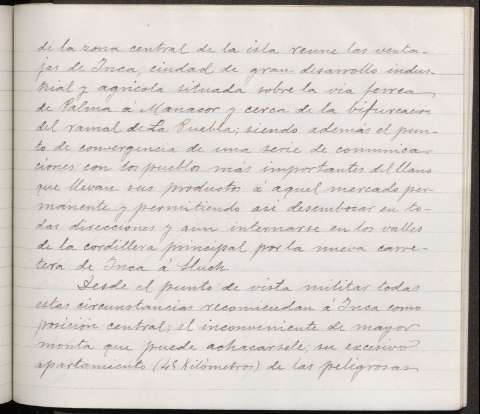 de la zona central de la isla reune las venta-
jas de Inca, ciudad de gran desarrollo indus-
trial y agricola situada sobre la via ferrea
de Palma á Manacor y cerca de la bifurcacion
del ramal de La Puebla; siendo además el pun-
to de convergencia de una serie de comunica-
ciones con los pueblos más importantes del llano
que llevan sus productos á aquel mercado per-
manente y permitiendo asi desembocar en to-
das direcciones y aun internarse en los valles
de la cordillera principal por la nueva carre-
tera de Inca á Lluch.
Desde el punto de vista militar todas
estas circunstancias recomiendan á Inca como
posición central; el inconveniente de mayor
monta que puede achacarsele, su excesivo
apartamiento (45 Kilómetros) de las peligrosas